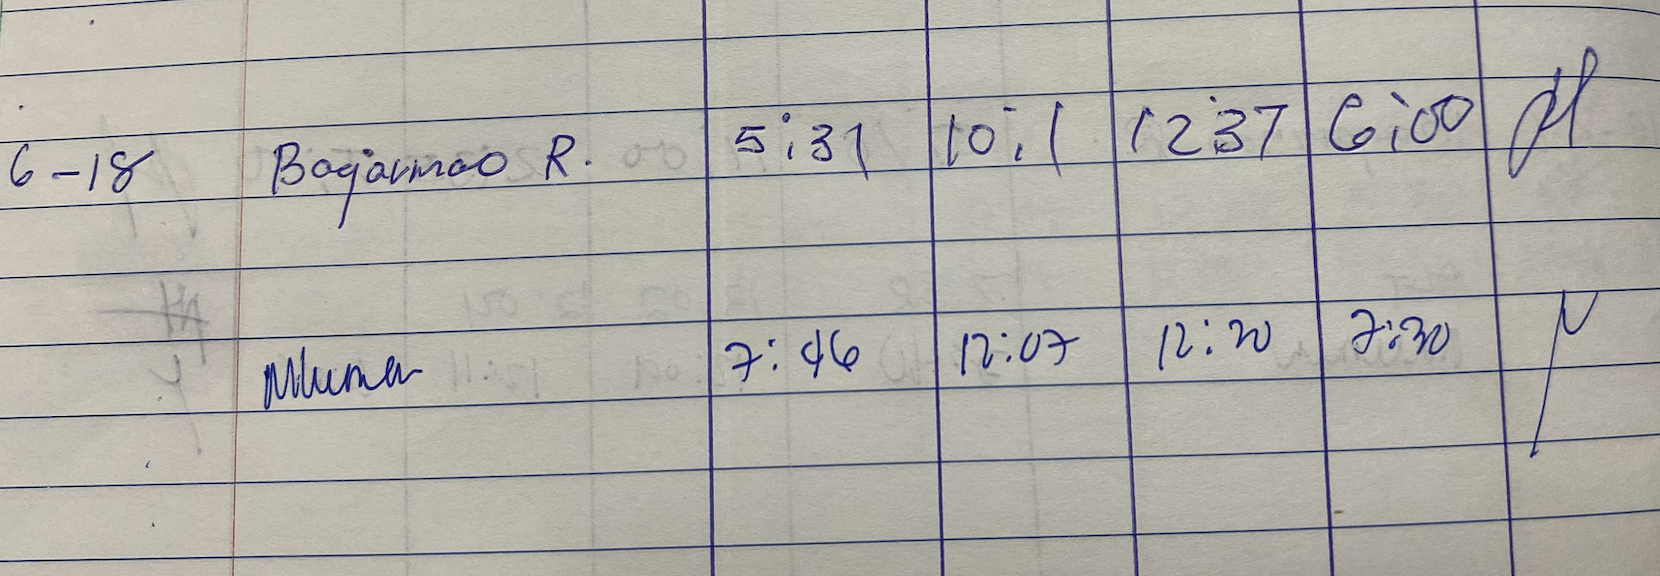 6-18 R. 5:31 10:1 12:37 6:00
7:46 12:07 12:20 7:30